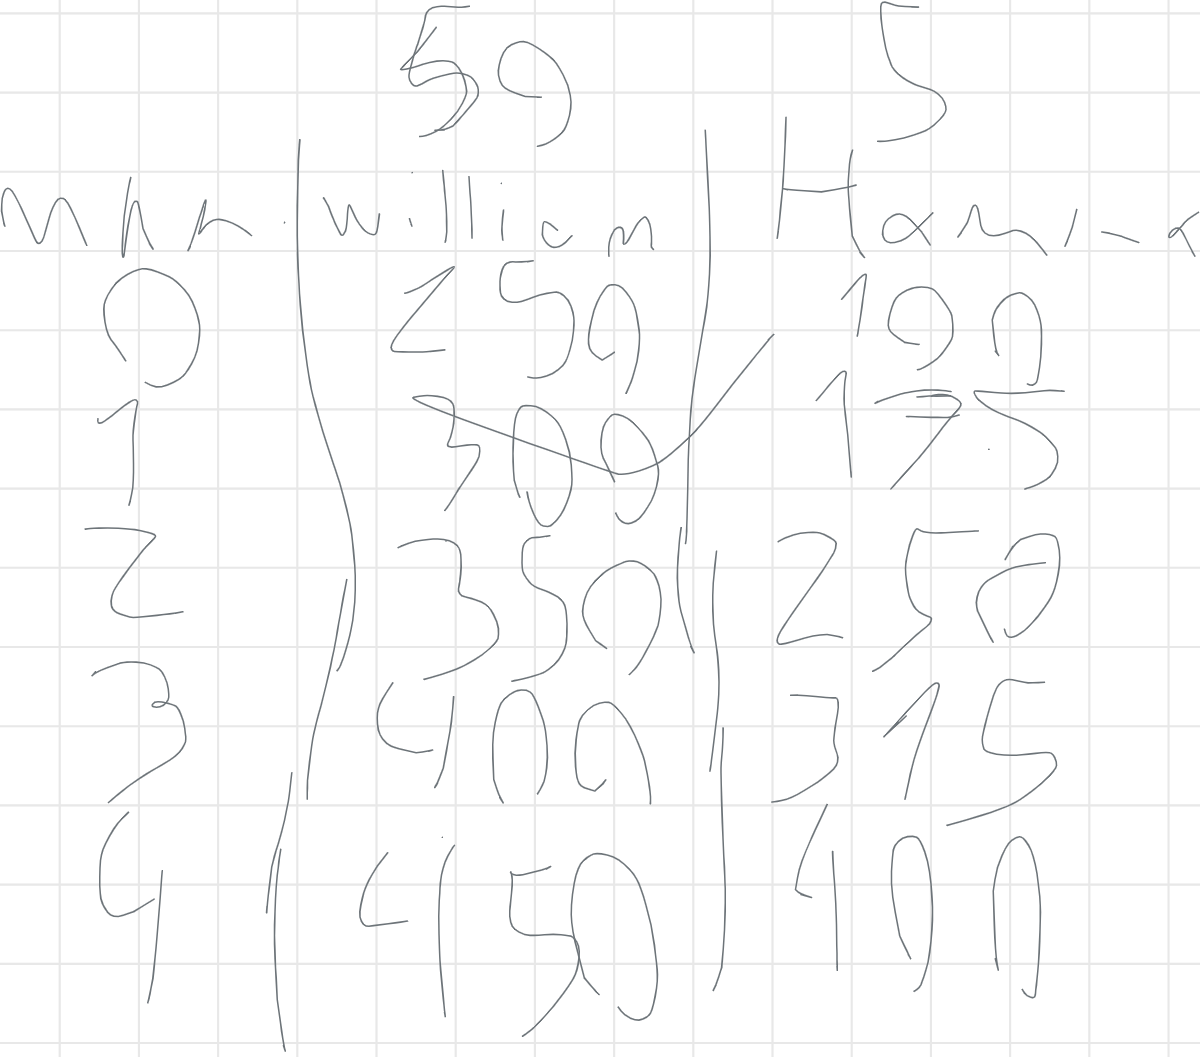 50 5
william
0 250 100
1 300 175
2 350 250
3 400 315
4 450 400